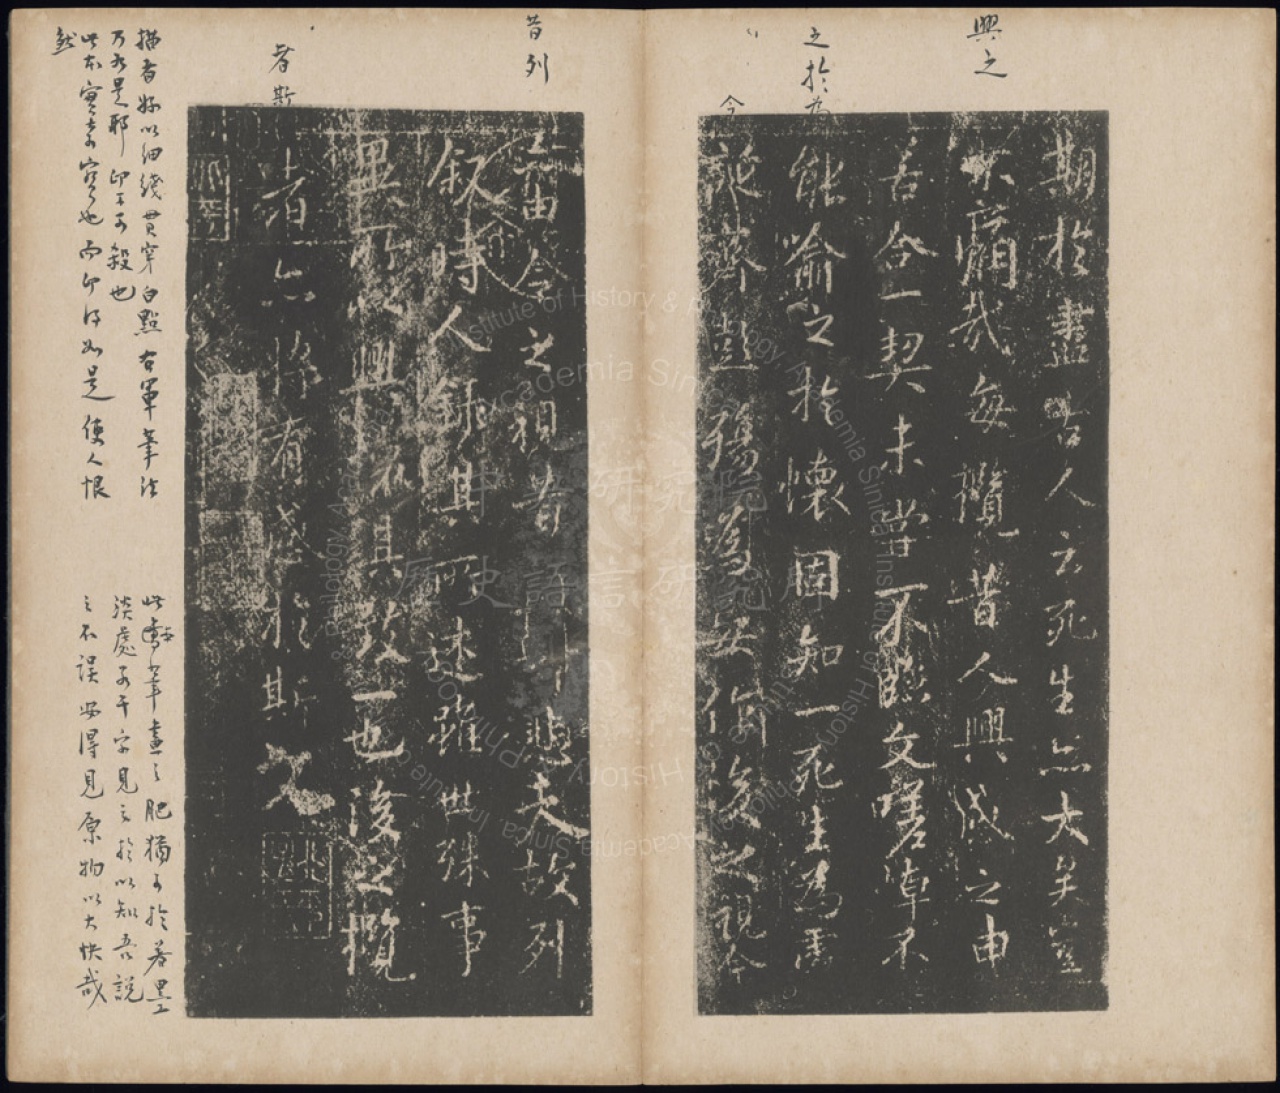 興之
之於為
今
期於盡古人云死生亦大矣豈
不痛哉每攬昔人興感之由
若合一契未嘗不臨文嗟悼不
能喻之於懷固知一死生為虛
誕齊彭殤為妄作後之視今
昔列
者斯
亦由今之視昔悲夫故列
叙時人錄其所述雖世殊事
異所以興懷其致一也後之攬
者亦將有感於斯文
描者好以細綫貫穿白點右軍筆法
乃如是耶印工可殺也
此本實奇寶也而印得如是使人恨
然
此引筆畫之肥猶可於著墨
淡處若干字見之於以知吾說
之不誤安得見原物以大快哉